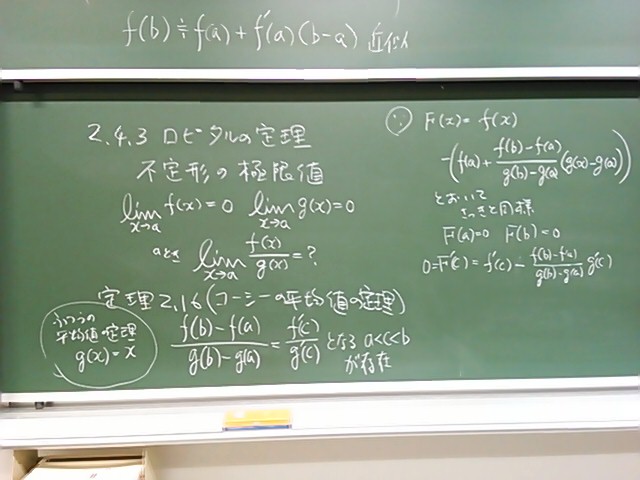 f(b) ≒ f(a) + f'(a)(b-a) 近似
2.4.3 ロピタルの定理
不定形の極限値
lim x→a f(x)=0 lim x→a g(x)=0
のとき lim x→a f(x)/g(x) = ?
定理2.16(コーシーの平均値の定理)
(f(b)-f(a))/(g(b)-g(a)) = f'(c)/g'(c) となる a<c<b
が存在
ふつうの
平均値の定理
g(x)=x
∵ F(x)= f(x)
-(f(a)+ (f(b)-f(a))/(g(b)-g(a)) (g(x)-g(a)))
とおいて
さっきと同様
F(a)=0 F(b)=0
0=F'(c)= f'(c) - (f(b)-f(a))/(g(b)-g(a)) g'(c)